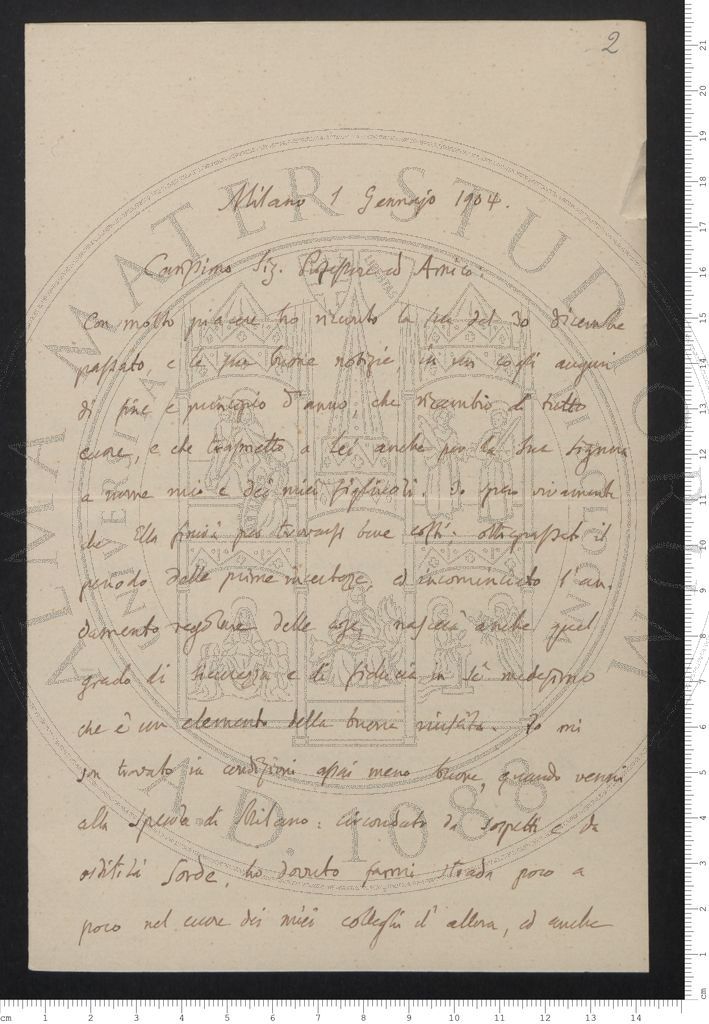 2
Milano 1 Gennajo 1904.
Carissimo Sig. Professore ed Amico:
Con molto piacere ho ricevuto la sua del 30 dicembre
passato, e le sue buone notizie, in un cogli auguri
di fine e principio d'anno, che ricambio di tutto
cuore, e che trasmetto a Lei anche per la Sua Signora
a nome mio e dei miei figliuoli. Io spero vivamente
che Ella finirà per trovarsi bene costì; oltrepassato il
periodo delle prime incertezze, ed incominciato l'an-
damento regolare delle cose, nascerà anche quel
grado di sicurezza e di fiducia in sè medesimo
che è un elemento della buona riuscita. Io mi
son trovato in condizioni assai meno buone, quando venni
alla Specola di Milano: circondato da sospetti e da
ostilità sorde, ho dovuto farmi strada poco a
poco nel cuore dei miei colleghi d'allora, ed anche
ALMA MATER STUDIORUM
A.D. 1088